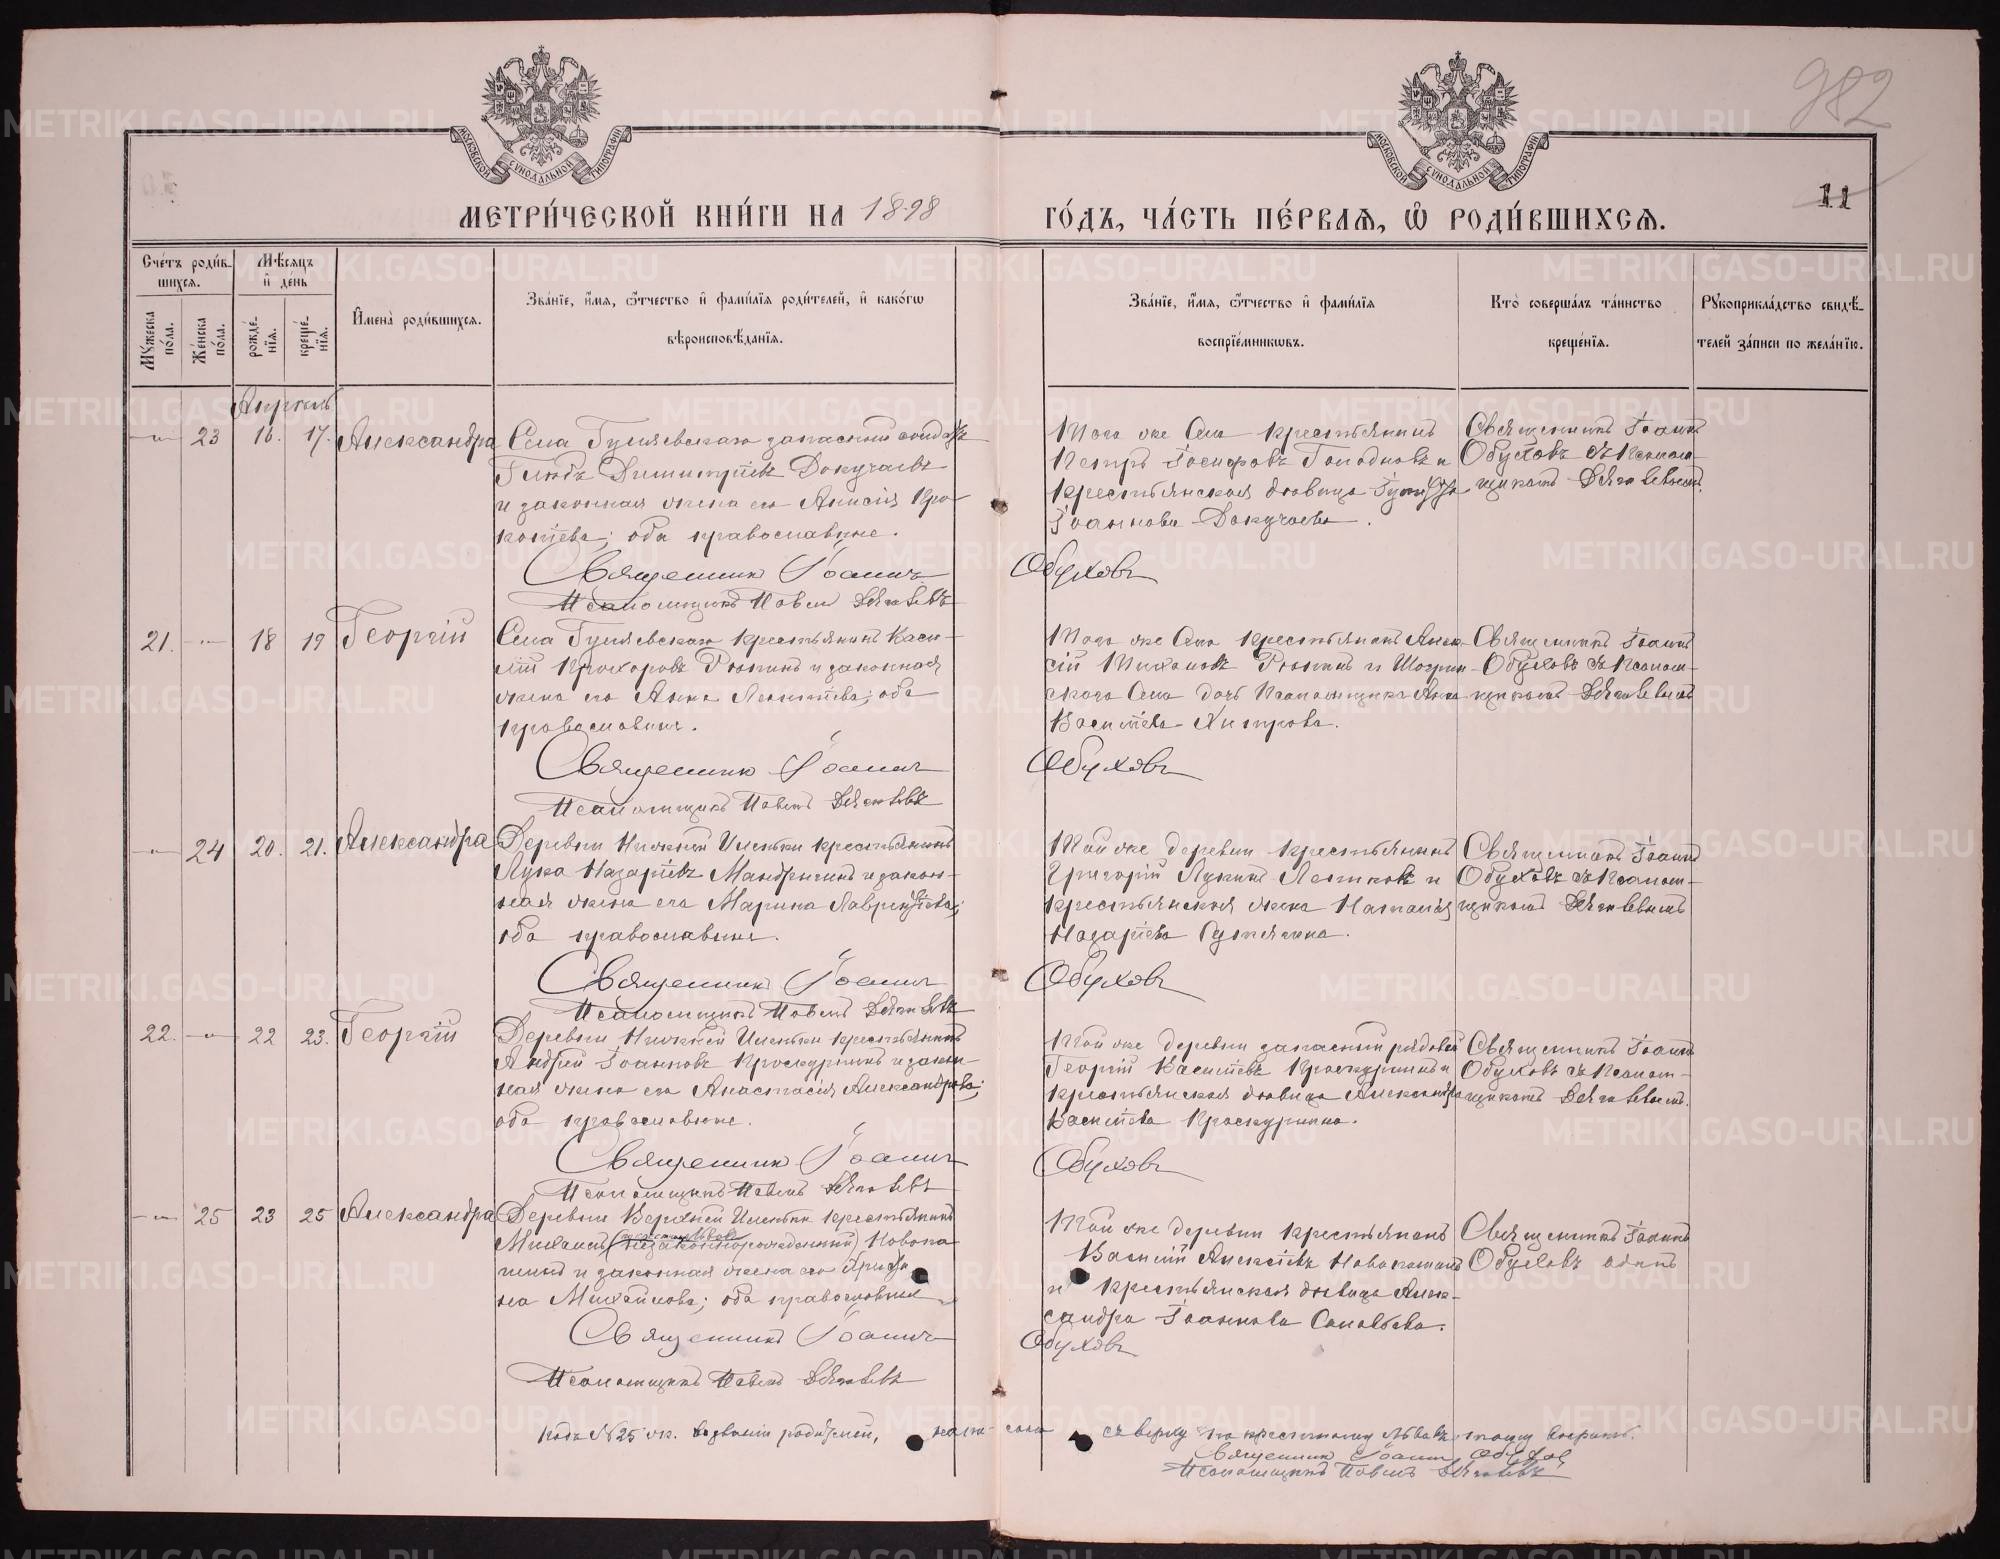 982
11
МОСКОВСКОЙ СѴНОДАЛЬНОЙ ТИПОГРАФІИ
МОСКОВСКОЙ СѴНОДАЛЬНОЙ ТИПОГРАФІИ
МЕТРИ́ЧЕСКОЙ КНИ́ГИ НА 1898 ГО́ДЪ, ЧА́СТЬ ПЕ́РВАѦ, Ѽ РОДИ́ВШИХСѦ.
Сче́тъ роди́в-
шихся.
Мꙋ́жеска по́ла.
Же́нска по́ла.
Мѣ́сяцъ и де́нь
рожде́нїя.
креще́нїя.
И҆мена̀ роди́вшихся.
Зва́нїе, и҆́мя, ѻ҆́тчество и҆ фами́лїя роди́телей, и҆ како́гѡ
вѣроисповѣ́данїя.
Зва́нїе, и҆́мя, ѻ҆́тчество и҆ фами́лїя
воспрїе́мникѡвъ.
Кто̀ соверша́лъ та́инство
креще́нїя.
Рꙋкоприкла́дство свидѣ́-
телей за́писи по жела́нїю.
Апрель
23 16. 17. Александра
Села Гуляевскаго запасный солдатъ
Димитріевъ Докучаевъ
и законная жена его Анисія Про-
копіева; оба православные.
Священникъ Іоаннъ Обуховъ
Псаломщикъ Павелъ
Того же Села крестьянинъ
Петръ Іосифовъ и
крестьянская дѣвица
Іоаннова Докучаева.
Священникъ Іоаннъ
Обуховъ съ Псалом-
щикомъ
21. 18 19 Георгій
Села Гуляевскаго крестьянинъ Васи-
лій Прохоровъ и законная
жена его Анна Леонтіева; оба
православные.
Священникъ Іоаннъ Обуховъ
Псаломщикъ Павелъ
Того же Села крестьянинъ Алек-
сій Тихоновъ и
скаго Села дочь Псаломщика Анна
Василіева Хитрова.
Священникъ Іоаннъ
Обуховъ съ Псалом-
щикомъ
24 20. 21. Александра
Деревни Нижней Иленьки крестьянинъ
Лука Назаріевъ Мандрыгинъ и закон-
ная жена его Марина Лаврентіева;
оба православные.
Священникъ Іоаннъ Обуховъ
Псаломщикъ Павелъ
Той же деревни крестьянинъ
Григорій Лукинъ и
крестьянская жена Наталія
Назаріева
Священникъ Іоаннъ
Обуховъ съ Псалом-
щикомъ
22. 22 23. Георгій
Деревни Нижней Иленьки крестьянинъ
Андрей Іоанновъ Проскурнинъ и закон-
ная жена его Анастасія Александрова;
оба православные.
Священникъ Іоаннъ Обуховъ
Псаломщикъ Павелъ
Той же деревни запасный рядовой
Георгій Василіевъ Проскурнинъ и
крестьянская дѣвица Александра
Василіева Проскурнина.
Священникъ Іоаннъ
Обуховъ съ Псалом-
щикомъ
25 23 25 Александра
Деревни Верхней Иленьки крестьянинъ
Михаилъ (незаконнорожденный) Новопа-
шинъ и законная жена его Ариад-
на Михайлова; оба православные
Священникъ Іоаннъ Обуховъ
Псаломщикъ Павелъ
Той же деревни крестьянинъ
Василій Алексіевъ Новопашинъ
и крестьянская дѣвица Алек-
сандра Іоаннова Соловьева.
Священникъ Іоаннъ
Обуховъ одинъ
Подъ №25 ж. въ званіи родителей, сверху по
Священникъ Іоаннъ Обуховъ
Псаломщикъ Павелъ
METRIKI.GASO-URAL.RU